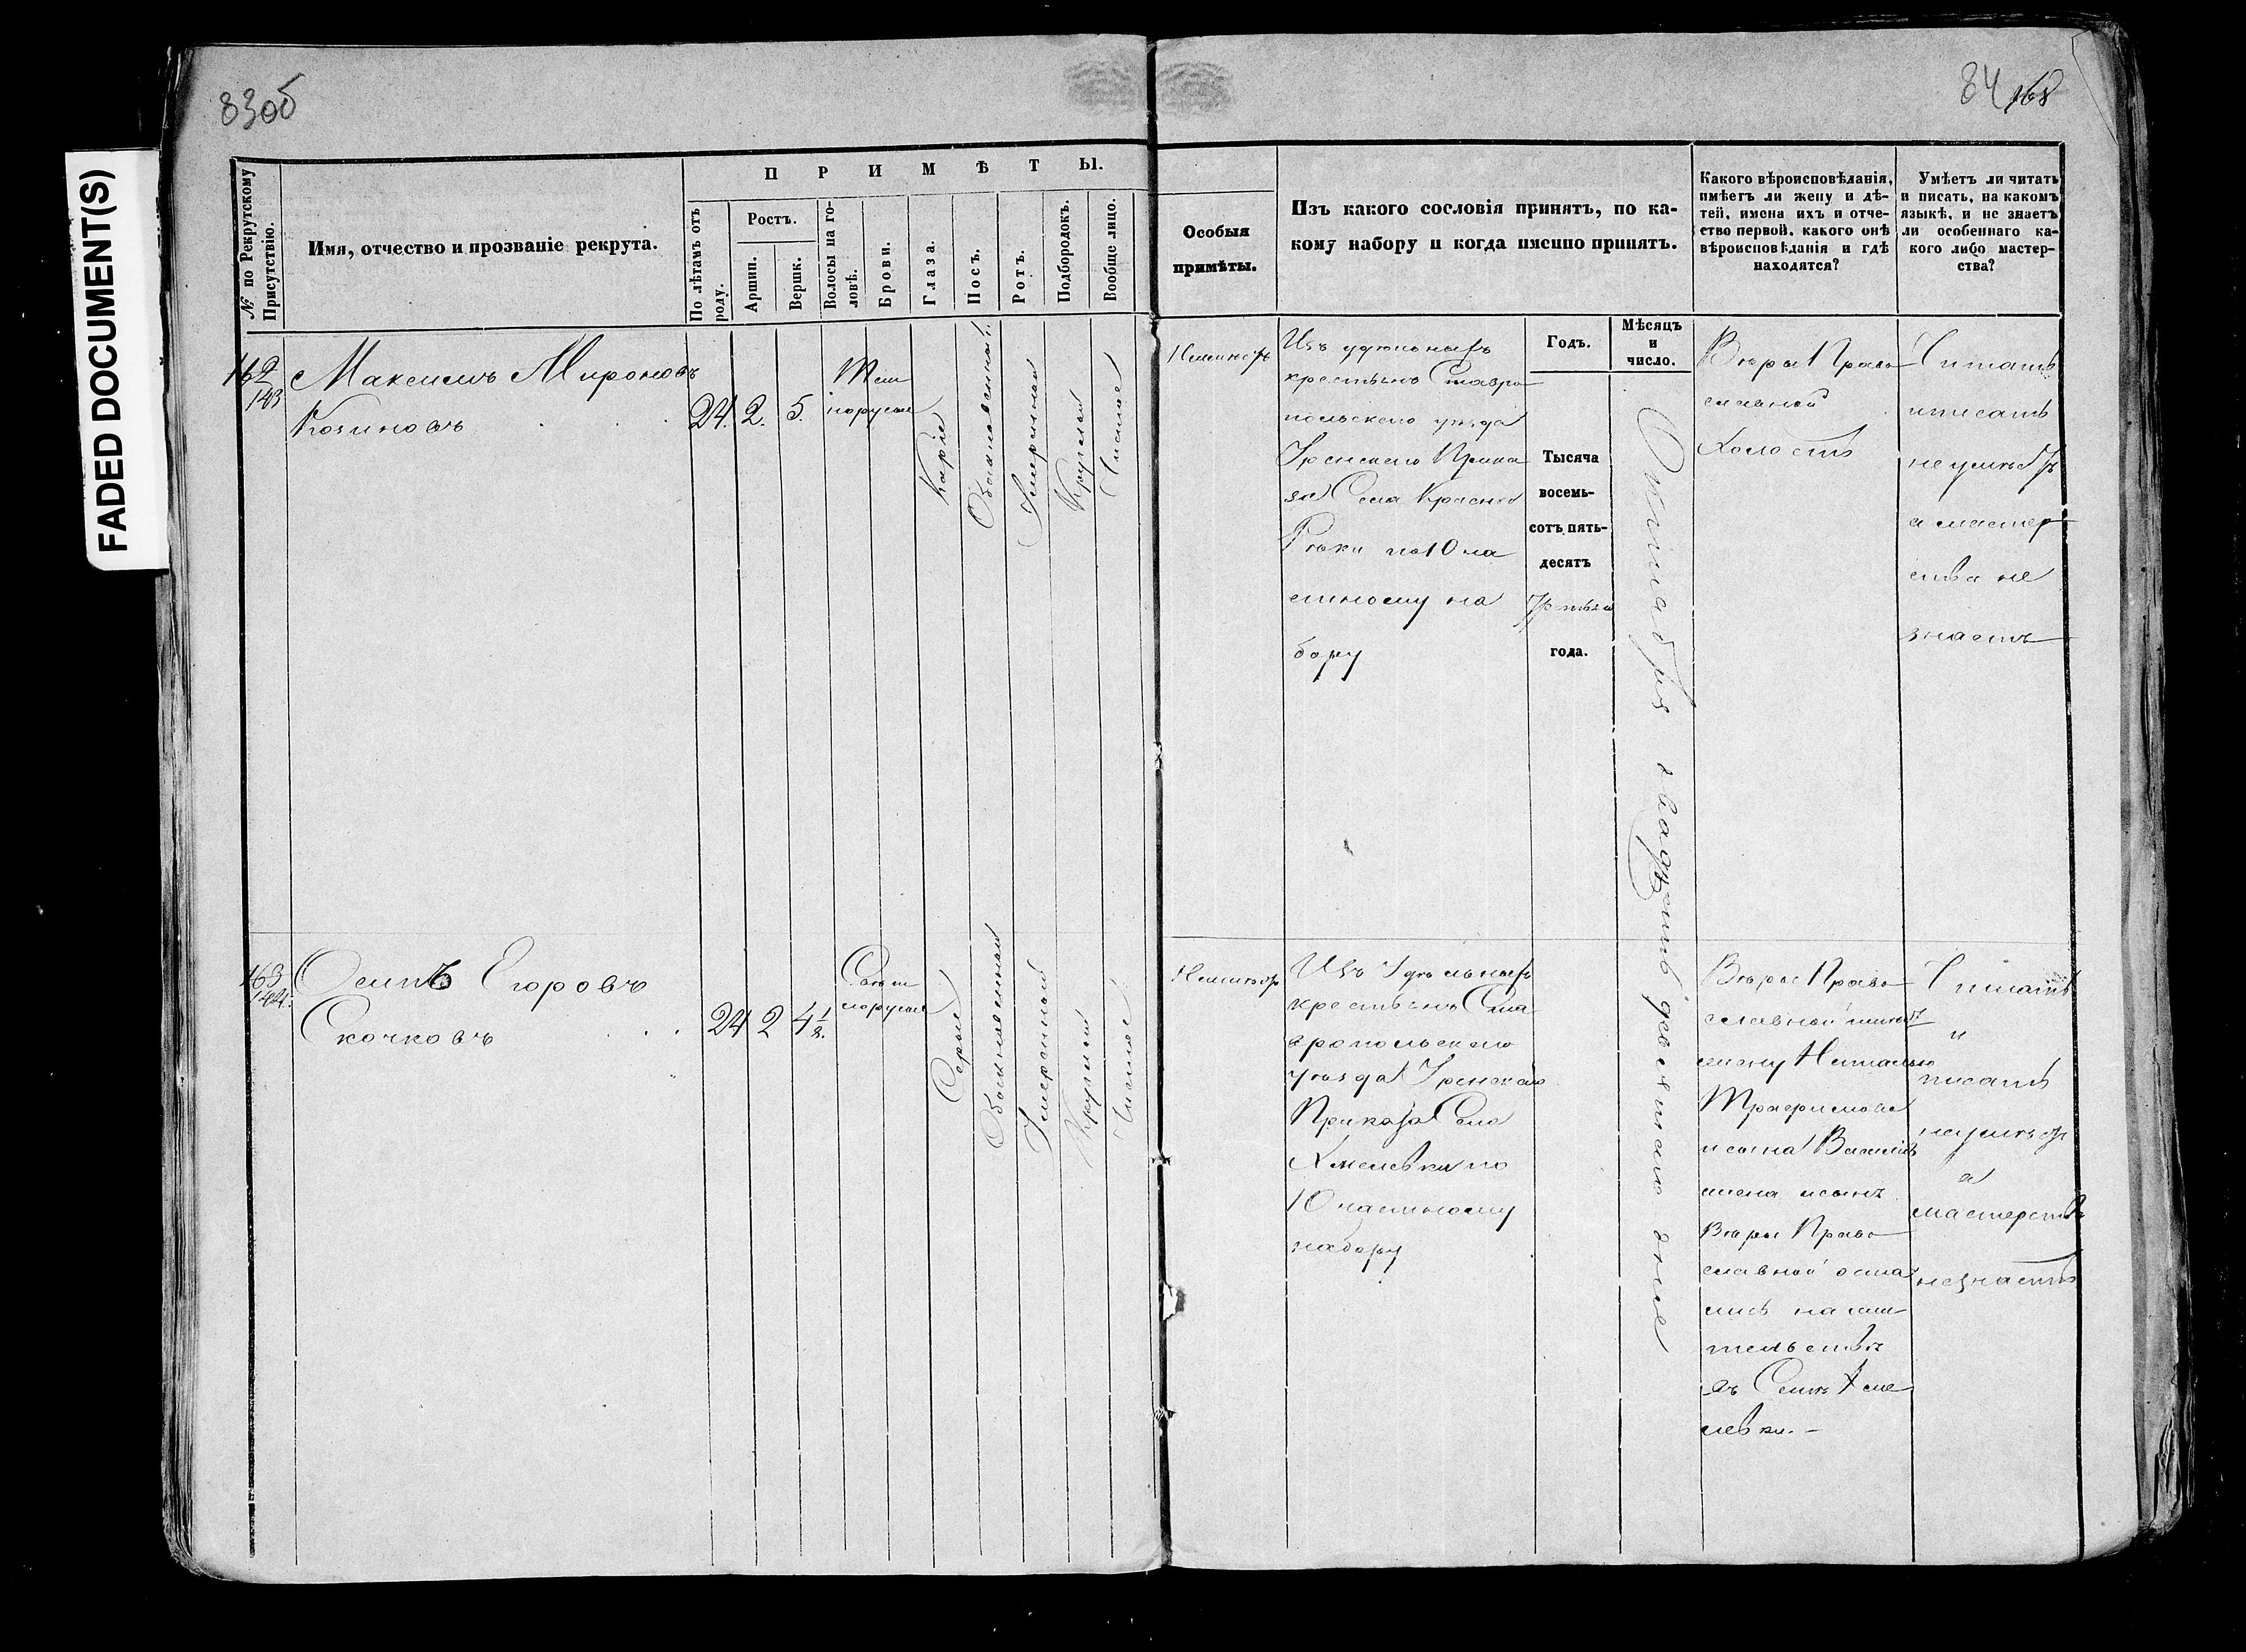 FADED DOCUMENT(S)
83об
84 168
№ по Рекрутскому Присутствію.
Имя, отчество и прозваніе рекрута.
ПРИМѢТЫ.
По лѣтамъ отъ роду.
Ростъ.
Аршин.
Вершк.
Волосы на головѣ.
Брови.
Глаза.
Носъ.
Ротъ.
Подбородокъ.
Вообще лицо.
Особыя
примѣты.
Изъ какого сословія принятъ, по ка-
кому набору и когда имсино принятъ.
Какого вѣроисповѣданія,
имѣетъ ли жену и дѣ-
тей, имена ихъ и отче-
ство первой, какого онѣ
вѣроисповѣданія и гдѣ
находятся?
Умѣетъ ли читать
и писать, на какомъ
языкѣ, и не знаетъ
ли особеннаго ка-
кого либо мастер-
ства?
162
143
Максимъ Мироновъ
Козиновъ
24. 2. 5.
Тем
норусые
Каріе
Обыкновенный
Умеренный
Круглый
Чистое
Неимѣетъ
Изъ удѣльныхъ
крестьянъ Ставро
польскаго уѣзда
Уренскаго Прика
за Села Красной
Рѣки по 10 ча
стному на
бору
Годъ.
Тысяча
восемь-
сотъ пять-
десятъ
Третьяго
года.
Мѣсяцъ
и
число.
Октября двадцать девятаго дня
Вѣры Право
славной
Холостъ
Читать
иписать
неумѣетъ
а мастер
ства не
знаетъ
163
144.
Осипъ Егоровъ
Скочковъ
24 2 4 1/8.
Свѣт
лорусые
Серые
Обыкновенный
Умеренный
Круглый
Чистое
Неимѣетъ
Изъ Удѣльныхъ
крестьянъ Ста
вропольскаго
уѣзда Уренскаго
Приказа Села
Хмелевки по
10 частному
набору
Вѣры Право
славной имѣетъ
жену Наталью
Трофимова
исына Василія
жена исынъ
Вѣры Право
славной оста
лись на жи
тельствѣ
въ Селѣ Хме
левки.-
Читать
и
писать
неумѣетъ
а
мастерства
незнаетъ